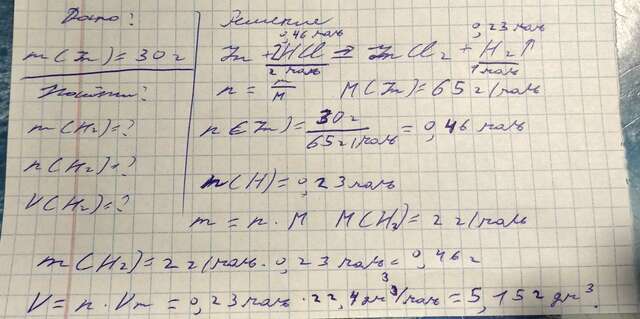 Дано:
m(Zn)=30г
Найти:
m(H₂)=?
n(H₂)=?
V(H₂)=?
Решение
0,46 моль 0,23 моль
Zn + 2HCl = ZnCl₂ + H₂↑
2 моль 1 моль
n = m/M M(Zn)=65г/моль
n(Zn)=30г/65г/моль=0,46 моль
n(H)=0,23 моль
m = n · M M(H₂)=2г/моль
m(H₂)=2г/моль·0,23 моль=0,46г
V=n·Vm=0,23 моль·22,4дм³/моль=5,152дм³.